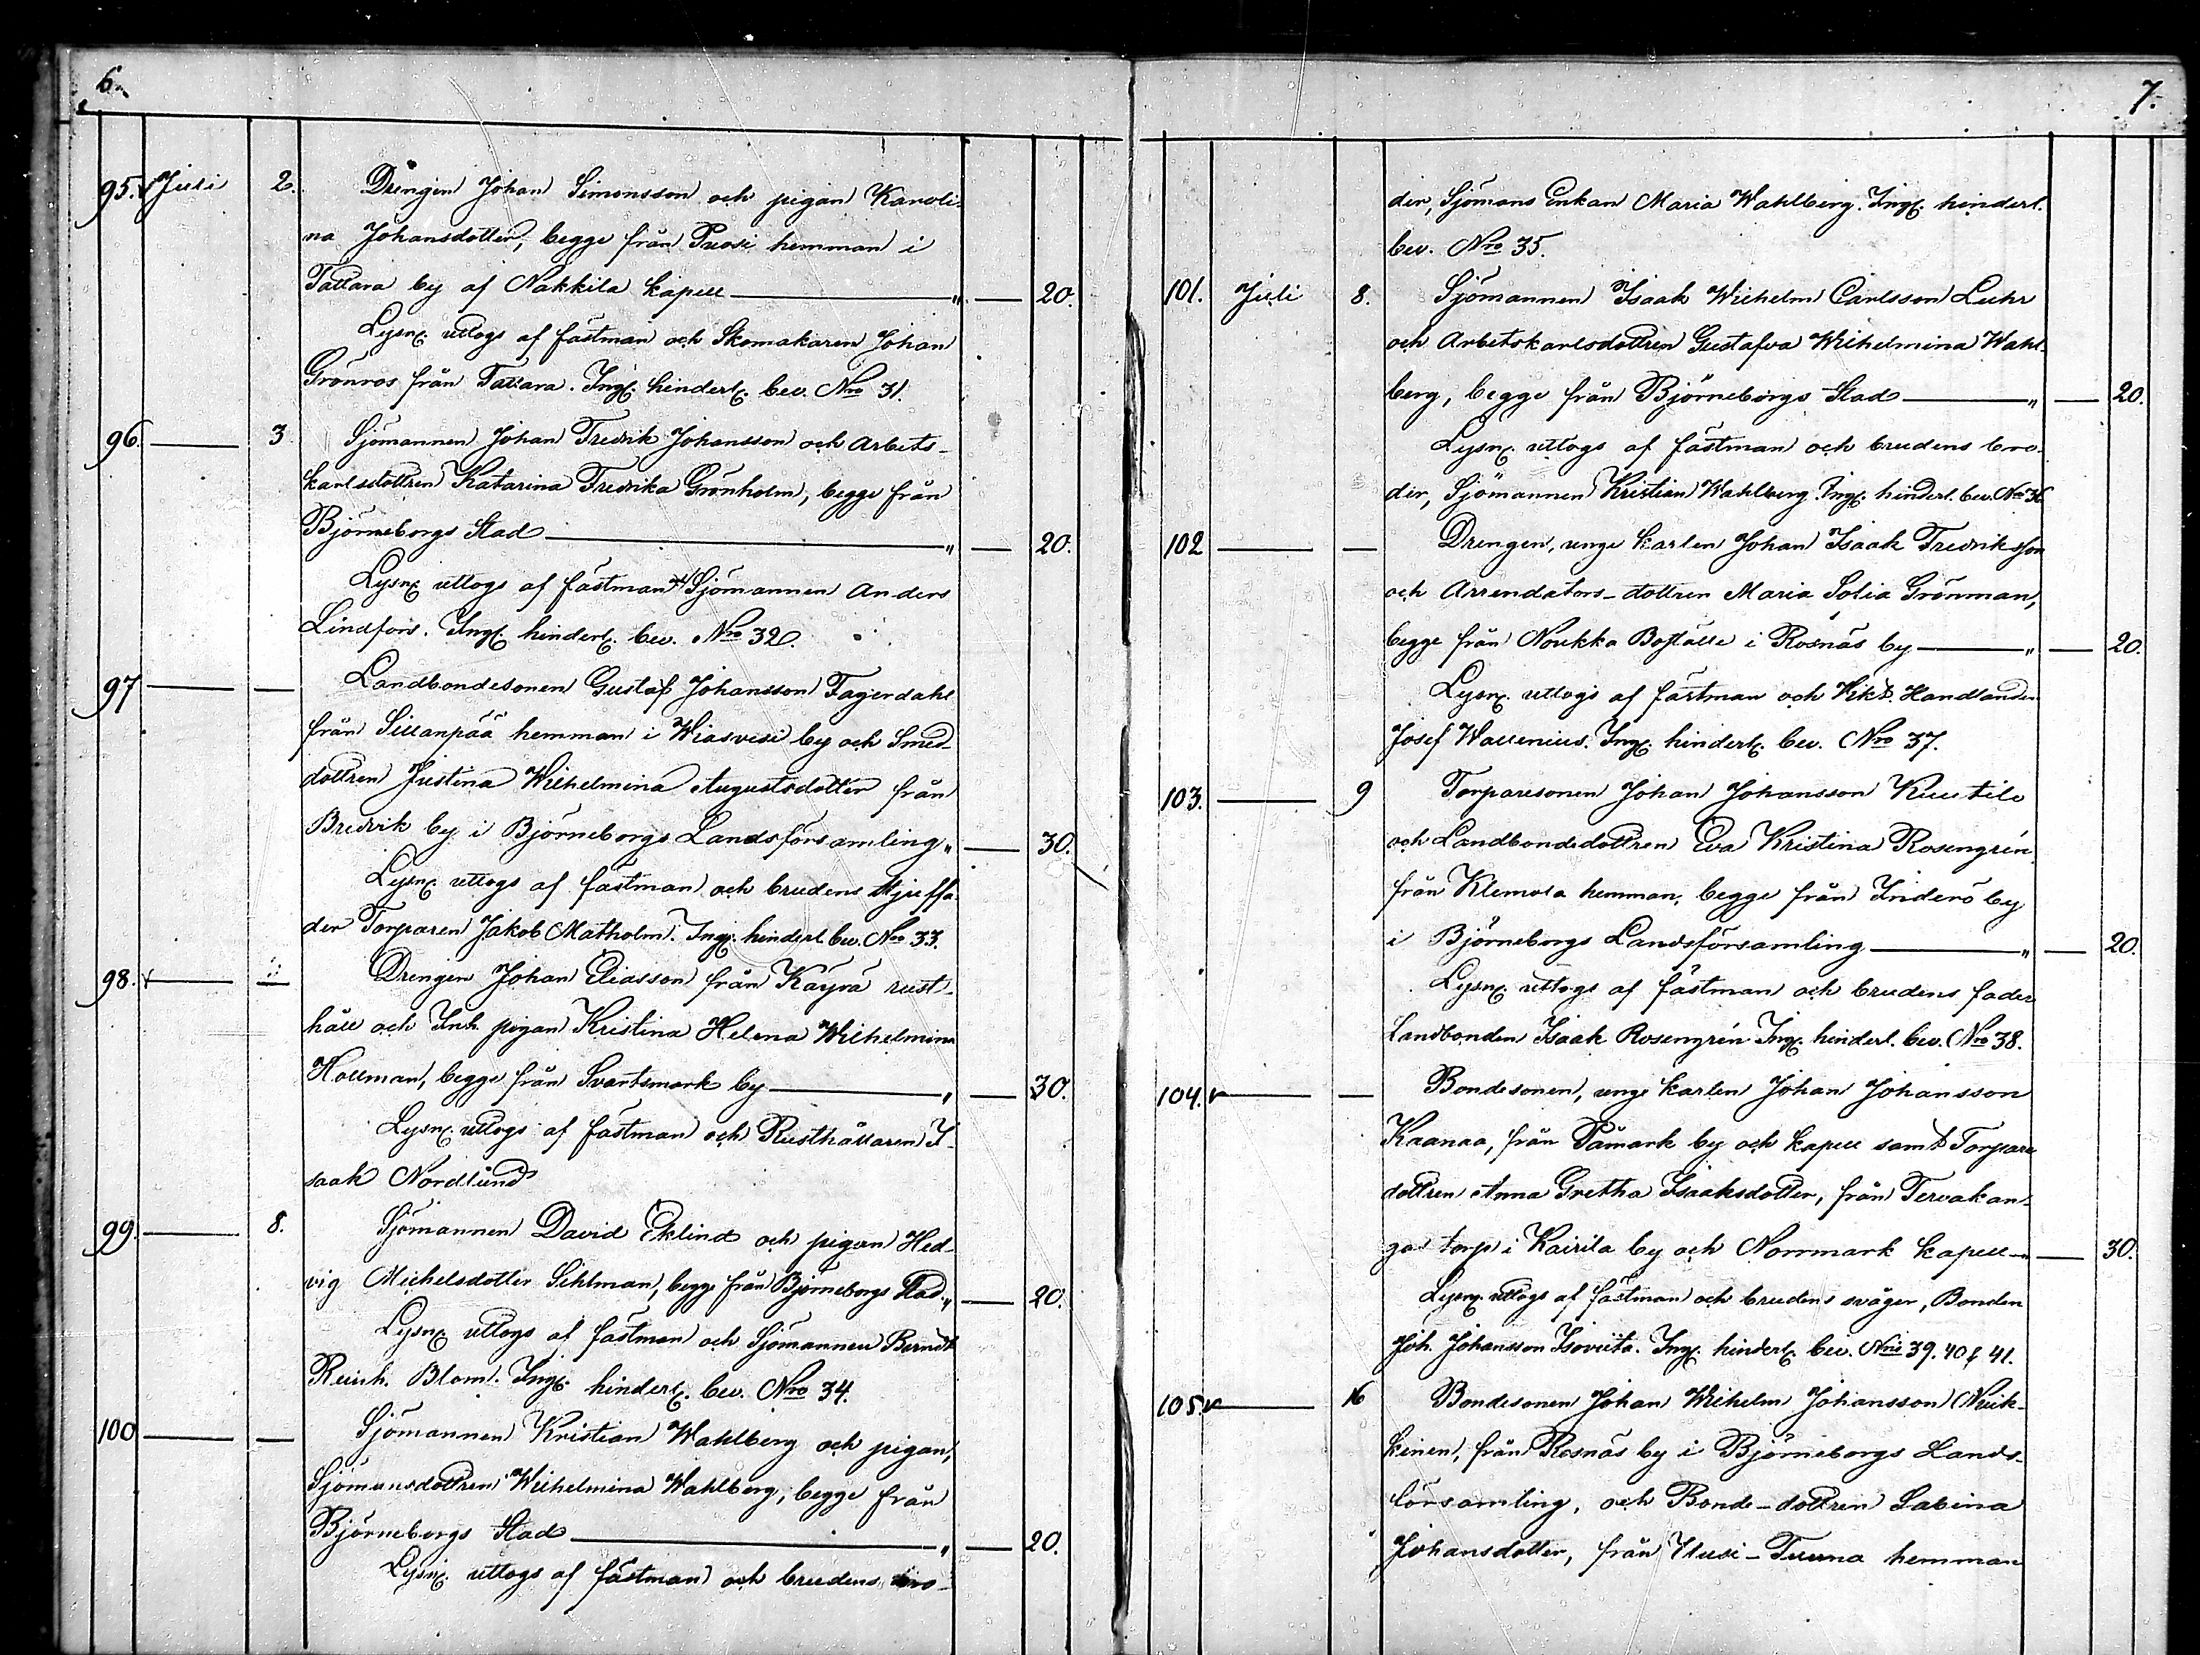 6.
95. Juli 2. Drengen Johan Simonsson och pigan Karoli-
na Johansdotter, begge från Prosi hemman i
Tattara by af Nakkila kapell " 20.
Lysng. uttogs af fästman och Skomakaren Johan
Grönros från Tattara. Ingf. hinderl. bev. Nro 31.
96. 3 Sjömannen Johan Fredrik Johansson och Arbets-
karlsdottren Katarina Fredrika Grönholm, begge från
Björneborgs Stad " 20.
Lysng. uttogs af fästman Sjömannen Anders
Lindfors. Ingf. hinderl. bev. Nro 32.
97 Landbondesonen Gustaf Johansson Fagerdahl
från Sillanpää hemman i Wiasvesi by och Smed-
dottren Justina Wilhelmina Augustsdotter från
Bredvik by i Björneborgs Landsförsamling " 30.
Lysng. uttogs af fästman och brudens stjuffa-
der Torparen Jakob Matholm. Ingf. hinderl. bev. Nro 33.
98. Drengen Johan Eliasson från Käyrä rust-
håll och Inh. pigan Kristina Helena Wilhelmina
Hollman, begge från Svartsmark by " 30.
Lysng. uttogs af fästman och Rusthållaren I-
saak Nordlund
99. 8. Sjömannen David Eklind och pigan Hed-
vig Michelsdotter Sehlman, begge från Björneborgs Stad " 20.
Lysng. uttogs af fästman och Sjömannen Berndt
Reinh. Blom. Ingf. hinderl. bev. Nro 34.
100 Sjömannen Kristian Wahlberg och pigan,
Sjömansdottren Wilhelmina Wahlberg, begge från
Björneborgs Stad " 20.
Lysng. uttogs af fästman och brudens bro-
7.
der, Sjömans Enkan Maria Wahlberg. Ingf. hinderl.
bev. Nro 35.
101. Juli 8. Sjömannen Isaak Wilhelm Carlsson Luhr
och Arbetskarlsdottren Gustafva Wilhelmina Wahl-
berg, begge från Björneborgs Stad " 20.
Lysng. uttogs af fästman och brudens bro-
der, Sjömannen Kristian Wahlberg. Ingf. hinderl. bev. Nro 36
102 Drengen, unge karlen Johan Isaak Fredriksson
och Arrendators-dottren Maria Sofia Grönman,
begge från Noukka Boställe i Rosnäs by " 20.
Lysng. uttogs af fästman och Vikt. Handlanden
Josef Wallenius. Ingf. hinderl. bev. Nro 37.
103. 9 Torparesonen Johan Johansson Kuutile
och Landbondedottren Eva Kristina Rosengrén
från Klemola hemman, begge från Inderö by
i Björneborgs Landsförsamling " 20.
Lysng. uttogs af fästman och brudens fader
Landbonden Isaak Rosengrén Ingf. hinderl. bev. Nro 38.
104. Bondesonen, unge karlen Johan Johansson
Kaanaa, från Påmark by och kapell samt Torpare
dottren Anna Gretha Isaaksdotter, från Tervakan-
ga torp i Kairila by och Norrmark kapell " 30.
Lysng. uttogs af fästman och brudens svåger, Bonden
Joh. Johansson Isoviita. Ingf. hinderl. bev. Nris 39. 40 & 41.
105. 16 Bondesonen Johan Wilhelm Johansson Nuik-
kinen, från Rosnäs by i Björneborgs Lands-
församling, och Bonde-dottren Sabina
Johansdotter, från Uusi-Tuuna hemman